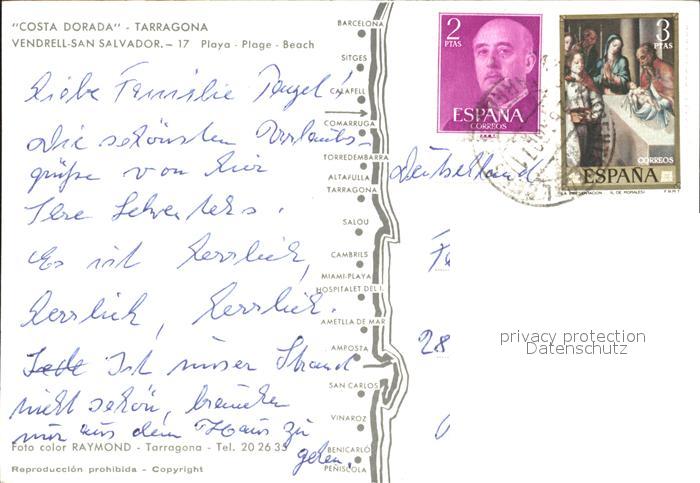 "COSTA DORADA" - TARRAGONA
VENDRELL-SAN SALVADOR. - 17 Playa - Plage - Beach
Liebe Familie
Die schönsten Urlaubs-
grüße von hier
Ihre
Es ist herrlich,
herrlich, herrlich.
Ist unser Strand
nicht schön, brauchen
nur aus dem Haus zu
gehen.
Foto color RAYMOND - Tarragona - Tel. 20 26 35
Reproducción prohibida - Copyright
BARCELONA
SITGES
CALAFELL
COMARRUGA
TORREDEMBARRA
ALTAFULLA
TARRAGONA
SALOU
CAMBRILS
MIAMI-PLAYA
HOSPITALET DEL I.
AMETLLA DE MAR
AMPOSTA
SAN CARLOS
VINAROZ
BENICARLÓ
PEÑISCOLA
2
PTAS
ESPAÑA
CORREOS
3
PTAS
CORREOS
ESPAÑA
LA PRESENTACION (L. DE MORALES) F.N.M.T
Deutschland
28
privacy protection
Datenschutz